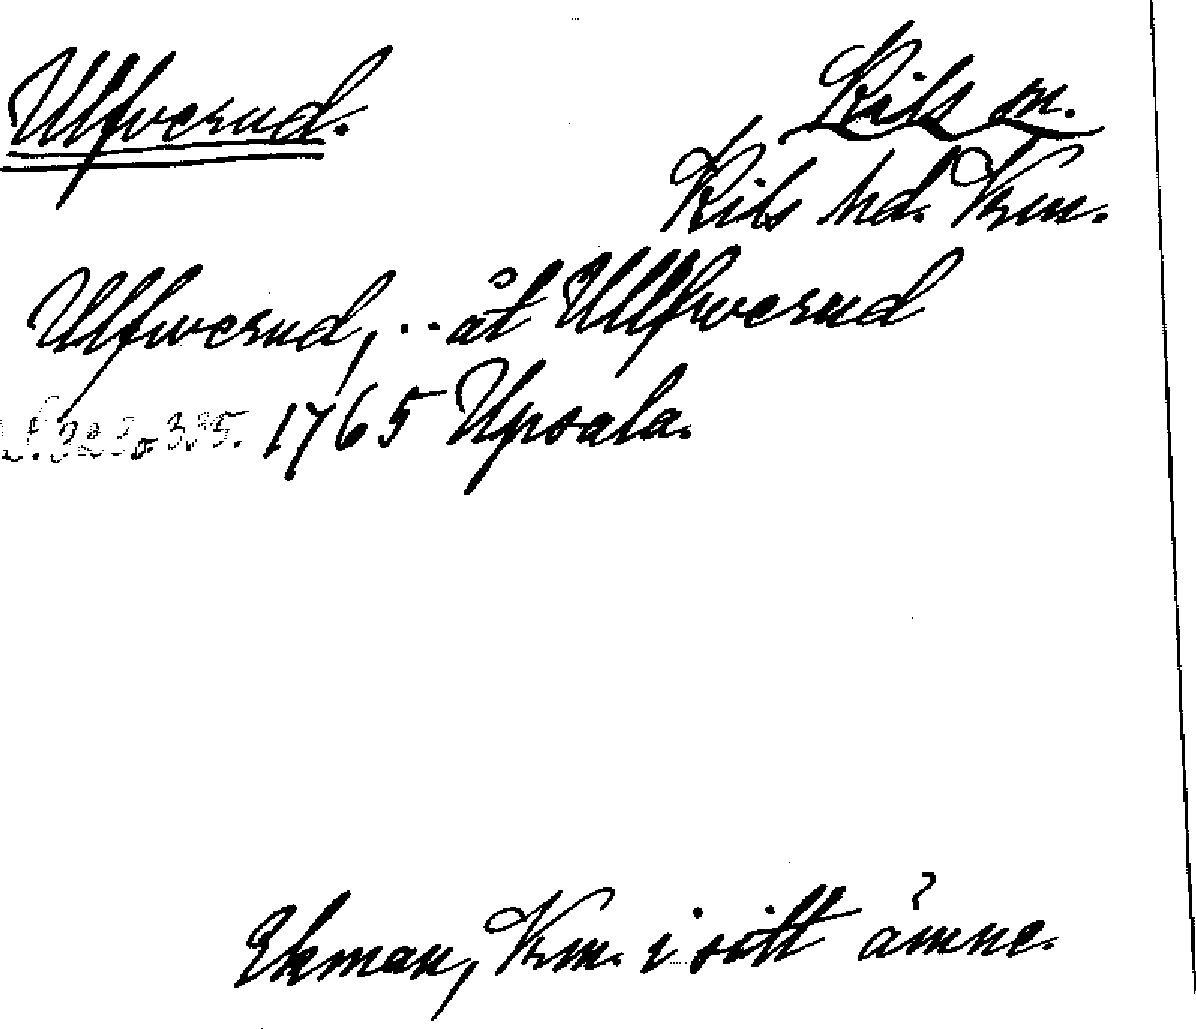 Ulfverud. Kils sn.
Kils hd. Vrm.
Ulfwerud, .. åt Ullfwerud
s. 322 o 335. 1765 Upsala.
Ekman, Vrm. i sitt ämne.